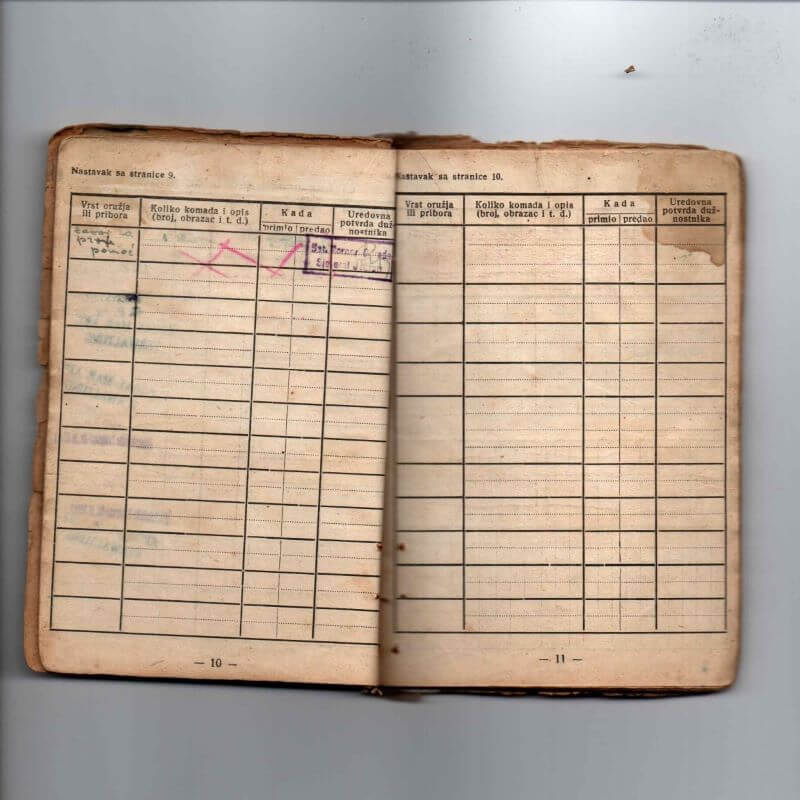 Nastavak sa stranice 9.
Vrst oružja
ili pribora
Koliko komada i opis
(broj, obrazac i t. d.)
Kada
primio predao
Uredovna
potvrda duž-
nostnika
zavoj za
prvu
pomoć
1
— 10 —
Nastavak sa stranice 10.
Vrst oružja
ili pribora
Koliko komada i opis
(broj, obrazac i t. d.)
Kada
primio predao
Uredovna
potvrda duž-
nostnika
— 11 —